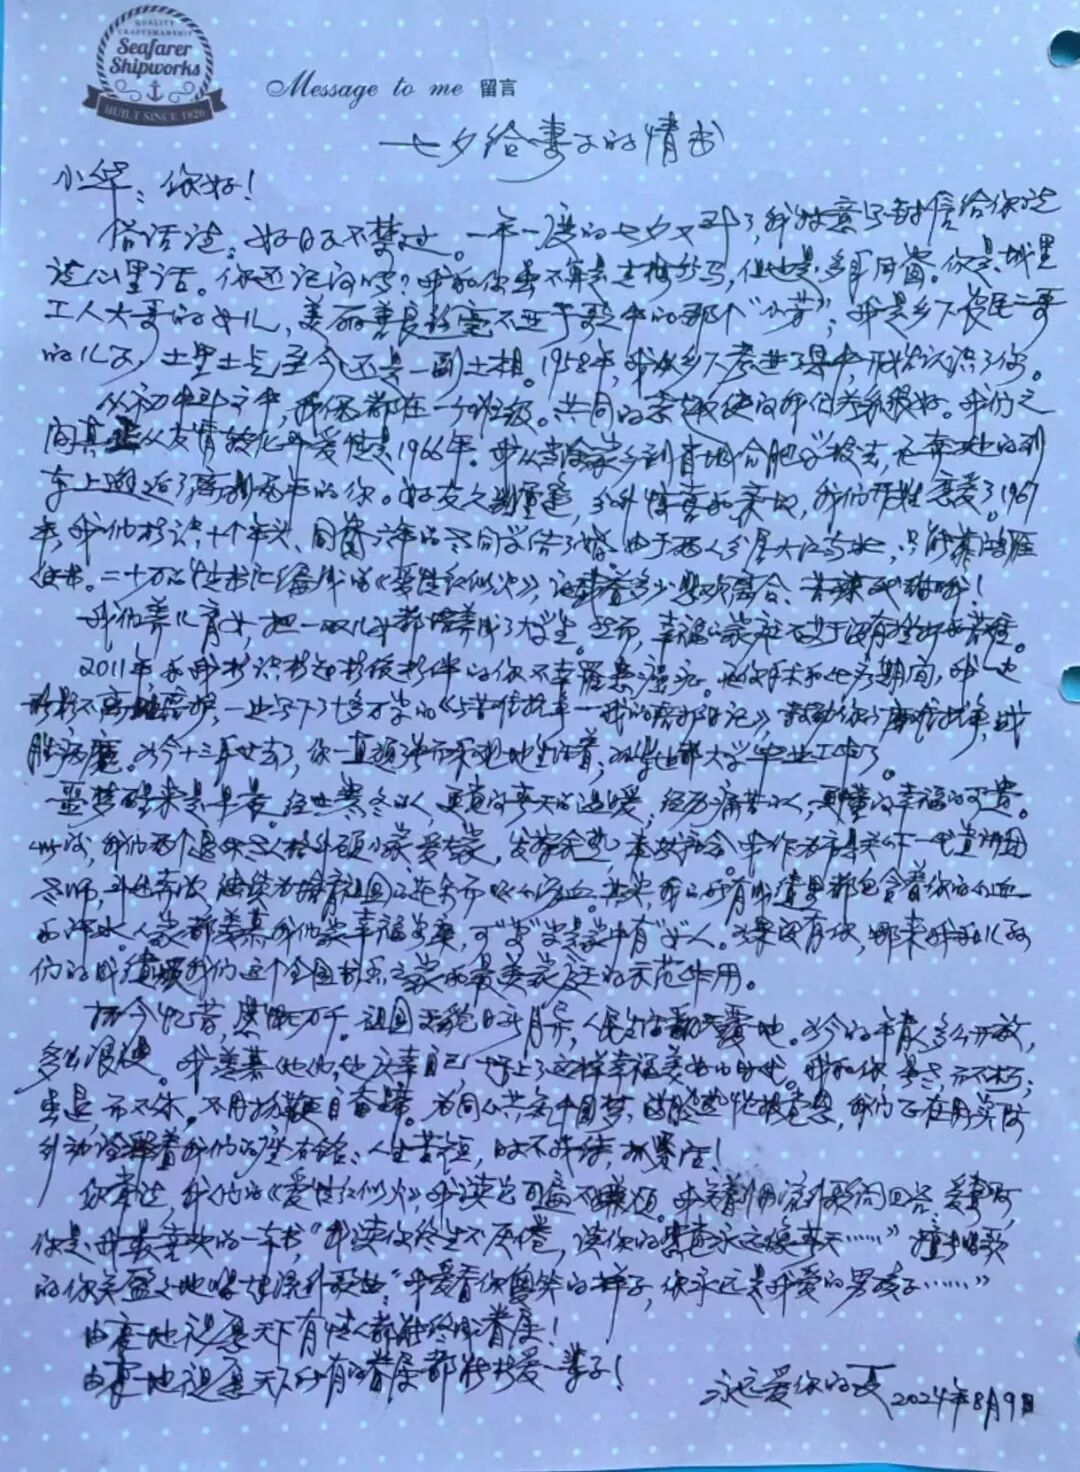 QUALITY
CRAFTSMANSHIP
Seafarer
Shipworks
BUILT SINCE 1826
Message to me 留言
七夕给妻子的情书
小华：你好！
俗话说：好日子不禁过。一年一度的七夕又到了，我特意写封信给你说
说心里话。你还记得吗？我和你虽不算是青梅竹马，但也是多年同窗。你是城里
工人大哥的女儿，美丽善良 毫不亚于歌中的那个“小芳”；我是乡下农民二哥
的儿子，土里土气至今还是一副土相。1958年，我从乡下考进了县中，开始认识了你。
从初中到高中，我俩都在一个班级。共同的 使得我们关系很好。我们之
间真正从友情转化为爱情是1966年。我从 家乡到省城合肥学校去，在奔驰的列
车上邂逅了 的你。好友久别重逢，分外惊喜和亲切，我们开始恋爱了。1967
年，我们相识十个年头、同窗六年的老同学结了婚。由于两人分居大江南北，只能靠鸿雁
传书。二十万的情书汇编成的《爱情红似火》，记载着多少悲欢离合、苦辣酸甜啊！
我们养儿育女，把一双儿女都培养成了大学生。然而，幸福的家庭不等于没有挫折和苦难。
2011年和我相识相知相依相伴的你不幸罹患癌症。在你手术和化疗期间，我一边
形影不离地 ，一边写下了十多万字的《与苦难抗争——我的陪护日记》，鼓励你与病魔抗争，战
胜病魔。如今十三年过去了，你一直顽强而乐观地生活着， 都大学毕业工作了。
噩梦醒来是早晨。经过寒冬的人，更知道春天的温暖；经历痛苦的人，更懂得幸福的可贵。
，我们两个退休老人格外顾小家爱大家，发挥余热， 作为市关工下一代宣讲团
老师， ，继续为培育祖国的花朵而呕心沥血。其实，我的所有成绩里都包含着你的心血
和汗水。人家都羡慕我们家幸福安康，可“安”字是家中有“女”人。如果没有你，哪来我和儿孙
们的成绩 我们这个全国书香之家和最美家庭的示范作用。
抚今忆昔，感慨万千。祖国面貌日新月异，人民生活翻天覆地。如今的年轻人多么开放，
多么浪漫。我羡慕他们，也庆幸自己赶上了这样幸福美好的时代。我和你，是老，而不朽；
虽退，而不休。不用扬鞭自奋蹄。为同心共筑中国梦， ，我们正在用实际
行动诠释着我们的座右铭：人生苦短，时不我待，抓紧活！
你常说，我们的《爱情红似火》，我读它百遍不嫌烦。我 回答：爱妻啊，
你是我最喜欢的一本书“我读你终生不厌倦，读你的 永远像春天……” 
的你笑盈盈地唱 “我爱看你傻笑的样子，你永远是我爱的男孩子……”
由衷地祝愿天下有情人都能终成眷属！
由衷地祝愿天下所有的眷属都能相爱一辈子！
永远爱你的 2024年8月9日